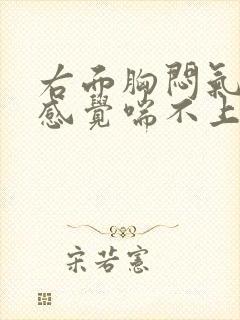 右而胸悶氣
感覺喘不上
宋若憲